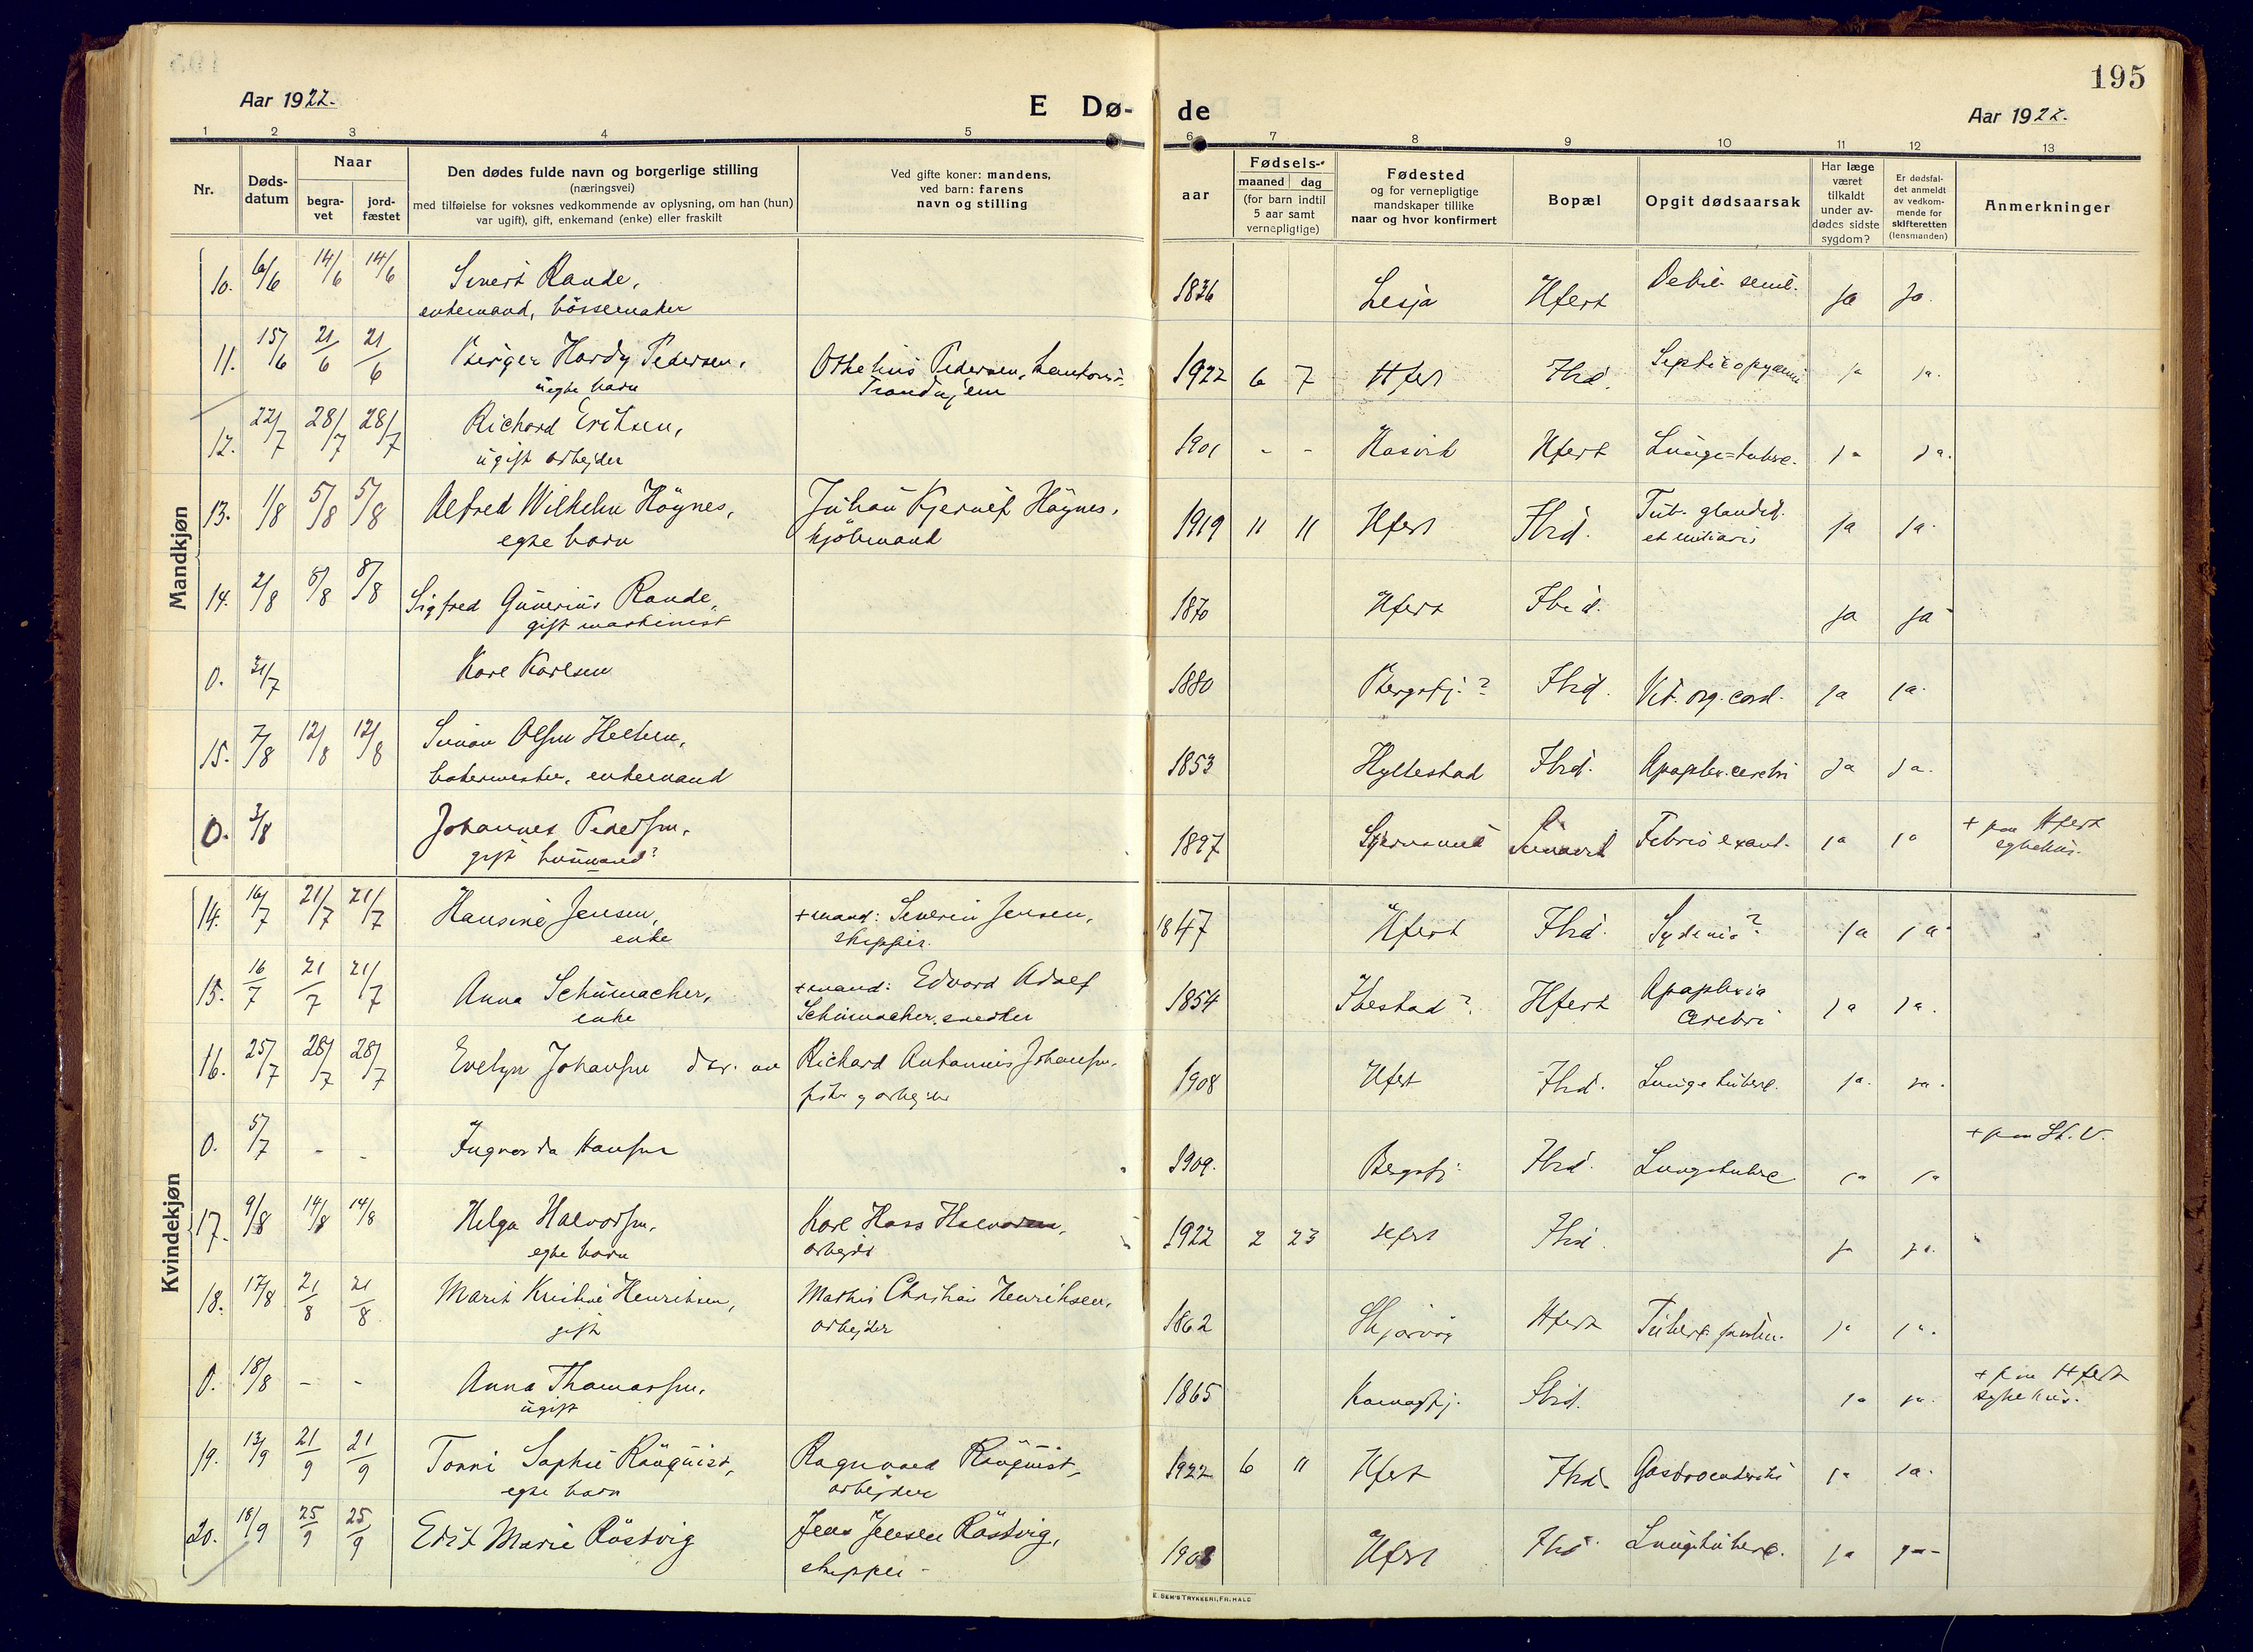 195
Aar 1922.
E Dø-
de
Aar 1922.
1 2 3 4 5 6 7 8 9 10 11 12 13
Nr.
Døds-
datum
Naar
begra-
vet
jord-
fæstet
Den dødes fulde navn og borgerlige stilling
(næringsvei)
med tilføielse for voksnes vedkommende av oplysning, om han (hun)
var ugift), gift, enkemand (enke) eller fraskilt
Ved gifte koner: mandens,
ved barn: farens
navn og stilling
aar
Fødsels-
maaned dag
(for barn indtil
5 aar samt
vernepligtige)
Fødested
og for vernepligtige
mandskaper tillike
naar og hvor konfirmert
Bopæl
Opgit dødsaarsak
Har læge
været
tilkaldt
under av-
dødes sidste
sygdom?
Er dødsfal-
det anmeldt
av vedkom-
mende for
skifteretten
(lensmanden)
Anmerkninger
Mandkjøn
10. 6/6 14/6 14/6 Sivert Rande, 1836 Lesja Hfest Debil. senil. ja ja.
enkemand, bössemaker
11. 15/6 21/6 21/6 Birger Hardy Pedersen, Othelius Pedersen, 1922 6 7 Hfest Ibid. Septicopyæmi ja ja.
uegte barn Trondhjem
12. 22/7 28/7 28/7 Richard Eriksen, 1901 - - Hasvik Hfest Lunge=tuberc. ja ja.
ugift arbejder
13. 1/8 5/8 5/8 Alfred Wilhelm Höynes, Johan Kjerulf Höynes, 1919 11 11 Hfest Ibid. Tub. glandul. ja ja.
egte barn kjöbmand et miliaris
14. 2/8 8/8 8/8 Sigfred Gunerius Rande, 1870 Hfest Ibid. ja ja
gift maskinist
0. 31/7 Karl Karlsen 1880 Bergsfj.? Ibid. Vit. org. cord. ja ja.
15. 7/8 12/8 12/8 Simon Olsen Hellem, 1853 Hyllestad Ibid. Apoplex. cerebri ja ja.
bakermester, enkemand
0. 3/8 Johannes Pedersen, 1897 Stjernsund Febris exant. ja ja + paa Hfest
gift sykehus.
Kvindekjøn
14. 16/7 21/7 21/7 Hansine Jensen, +mand: Severin Jensen, 1847 Hfest Ibid. ja ja.
enke skipper.
15. 16/7 21/7 21/7 Anna Schumacher, +mand: Edvard Adolf 1854 Ibestad? Hfest Apoplexia ja ja.
enke Schumacher, snedker cerebri
16. 25/7 28/7 28/7 Evelyn Johansen dtr. av Richard Antonius Johansen, 1908 Hfest Ibid. Lungetuberc. ja. ja.
fisker og arbejder
0. 5/7 - - Ingvarda Hansen 1909. Bergsfj. Ibid. Lungetuberc ja ja + paa St. V.
17. 9/8 14/8 14/8 Helga Halvorsen, Karl Hass Halvorsen, 1922 2 23 Hfest Ibid. ja ja.
egte barn arbejder
18. 17/8 21/8 21/8 Marit Kristine Henriksen, Mathis Christian Henriksen, 1862 Skjervöy Hfest Tuberc. pulm. ja ja.
gift arbejder
0. 18/8 - - Anna Thomassen, 1865 Komagfj. Ibid. ja ja. + paa Hfest
ugift sykehus.
19. 13/9 21/9 21/9 Tonni Sophie Rönquist, Ragnvald Rönquist, 1922 6 11 Hfest Ibid. Gastroenteritis ja ja.
egte barn arbejder
20. 18/9 25/9 25/9 Edit Marie Röstvig Jens Jensen Röstvig, 1908 Hfest Ibid. Lungetuberc. ja ja-
skipper-
E. SEM'S TRYKKERI, FR. HALD